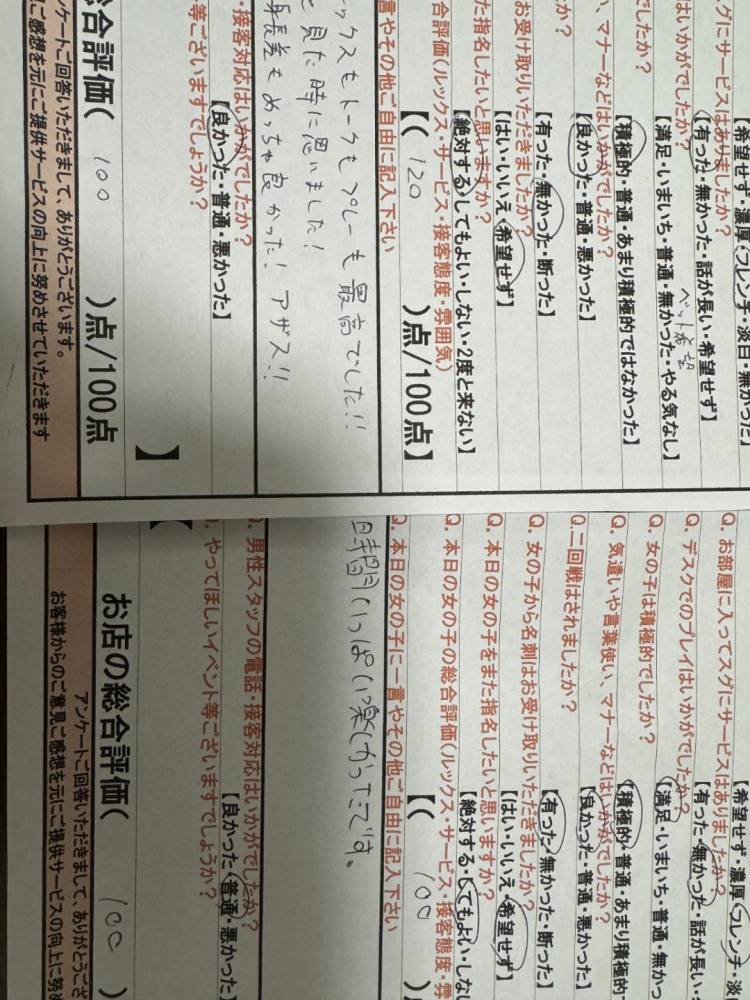 【希望せず・濃厚・フレンチ・淡白・無かった】
グにサービスはありましたか？
【有った・無かった・話が長い・希望せず】
はいかがでしたか？
ベット希望
【満足・いまいち・普通・無かった・やる気なし】
でしたか？
【積極的・普通・あまり積極的ではなかった】
、マナーなどはいかがでしたか？
【良かった・普通・悪かった】
か？
【有った・無かった・断った】
お受け取りいただきましたか？
【はい・いいえ・希望せず】
た指名したいと思いますか？
【絶対する・してもよい・しない・2度と来ない】
合評価(ルックス・サービス・接客態度・雰囲気)
【( 120 )点/100点】
言やその他ご自由に記入下さい
ックスもトークもプレーも最高でした!!
見た時に思いました!
身長差もめっちゃ良かった! アザス!!
・接客対応はいかがでしたか？
【良かった・普通・悪かった】
等ございますでしょうか？
】
合評価( 100 )点/100点
ンケートご回答いただきまして、ありがとうございます。
ご感想を元にご提供サービスの向上に努めさせていただきます
【希望せず・濃厚・フレンチ・淡
Q. お部屋に入ってスグにサービスはありましたか？
【有った・無かった・話が長い・
Q. デスクでのプレイはいかがでしたか？
【満足・いまいち・普通・無かっ
Q. 女の子は積極的でしたか？
【積極的・普通・あまり積極的
Q. 気遣いや言葉使い、マナーなどはいかがでしたか？
【良かった・普通・悪かった】
Q. 二回戦はされましたか？
【有った・無かった・断った】
Q. 女の子から名刺はお受け取りいただきましたか？
【はい・いいえ・希望せず】
Q. 本日の女の子をまた指名したいと思いますか？
【絶対する・してもよい・しな
Q. 本日の女の子の総合評価(ルックス・サービス・接客態度・雰
【( 100 )
Q. 本日の女の子に一言やその他ご自由に記入下さい
時間いっぱい楽しかったです。
Q. 男性スタッフの電話・接客対応はいかがでしたか？
【良かった・普通・悪かった】
. やってほしいイベント等ございますでしょうか？
【
お店の総合評価( 100 )
アンケートご回答いただきまして、ありがとうござ
お客様からのご意見ご感想を元にご提供サービスの向上に努め